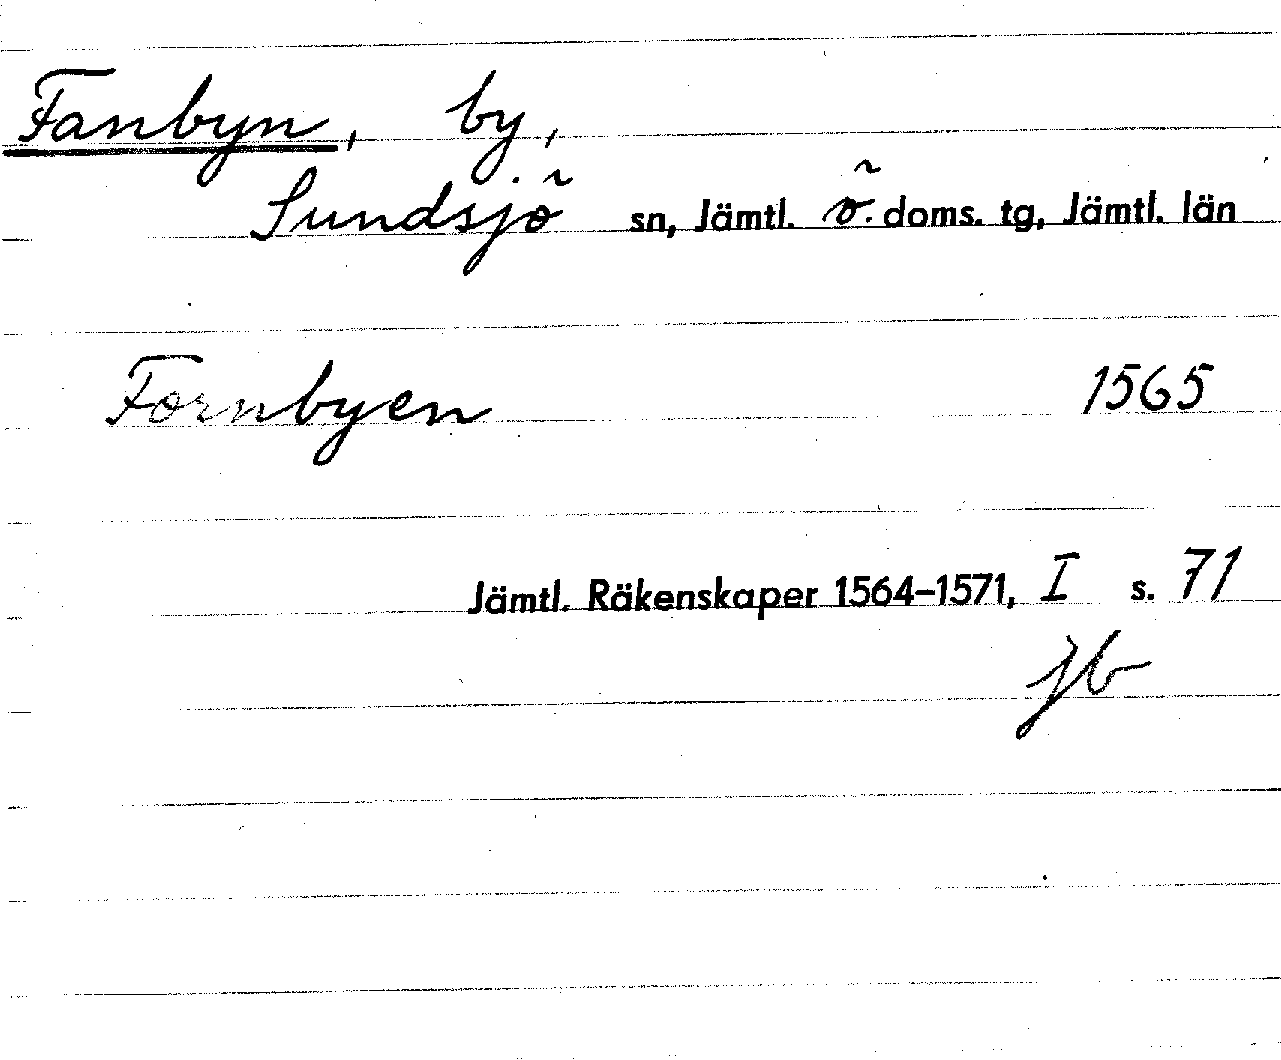 Fanbyn, by,
Sundsjö sn, Jämtl. ö. doms. tg, Jämtl. län
Fornbyen 1565
Jämtl. Räkenskaper 1564-1571, I s. 71